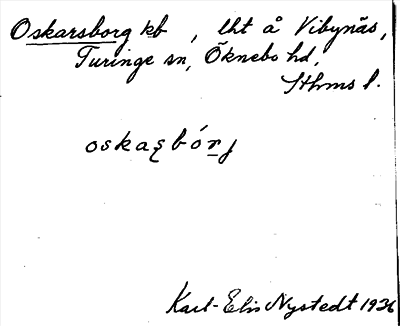 Oskarsborg kb , lht å Vibynäs,
Turinge sn, Öknebo hd,
Sthms l.
oskaʂbórj
Karl-Elis Nystedt 1936